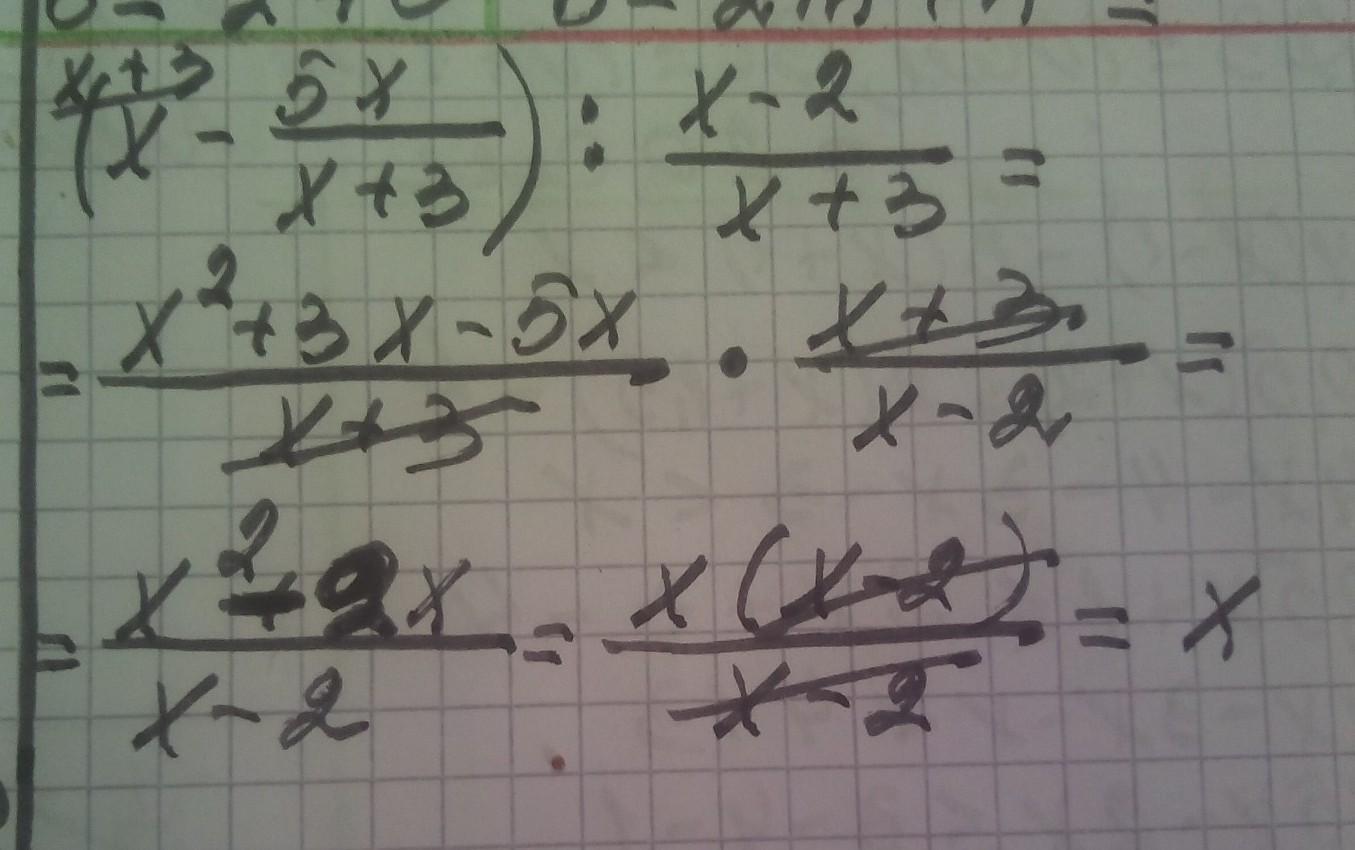 x+3
(x - 5x/(x+3)) : (x-2)/(x+3) =
= (x²+3x-5x)/(x+3) · (x+3)/(x-2) =
= (x²-2x)/(x-2) = x(x-2)/(x-2) = x